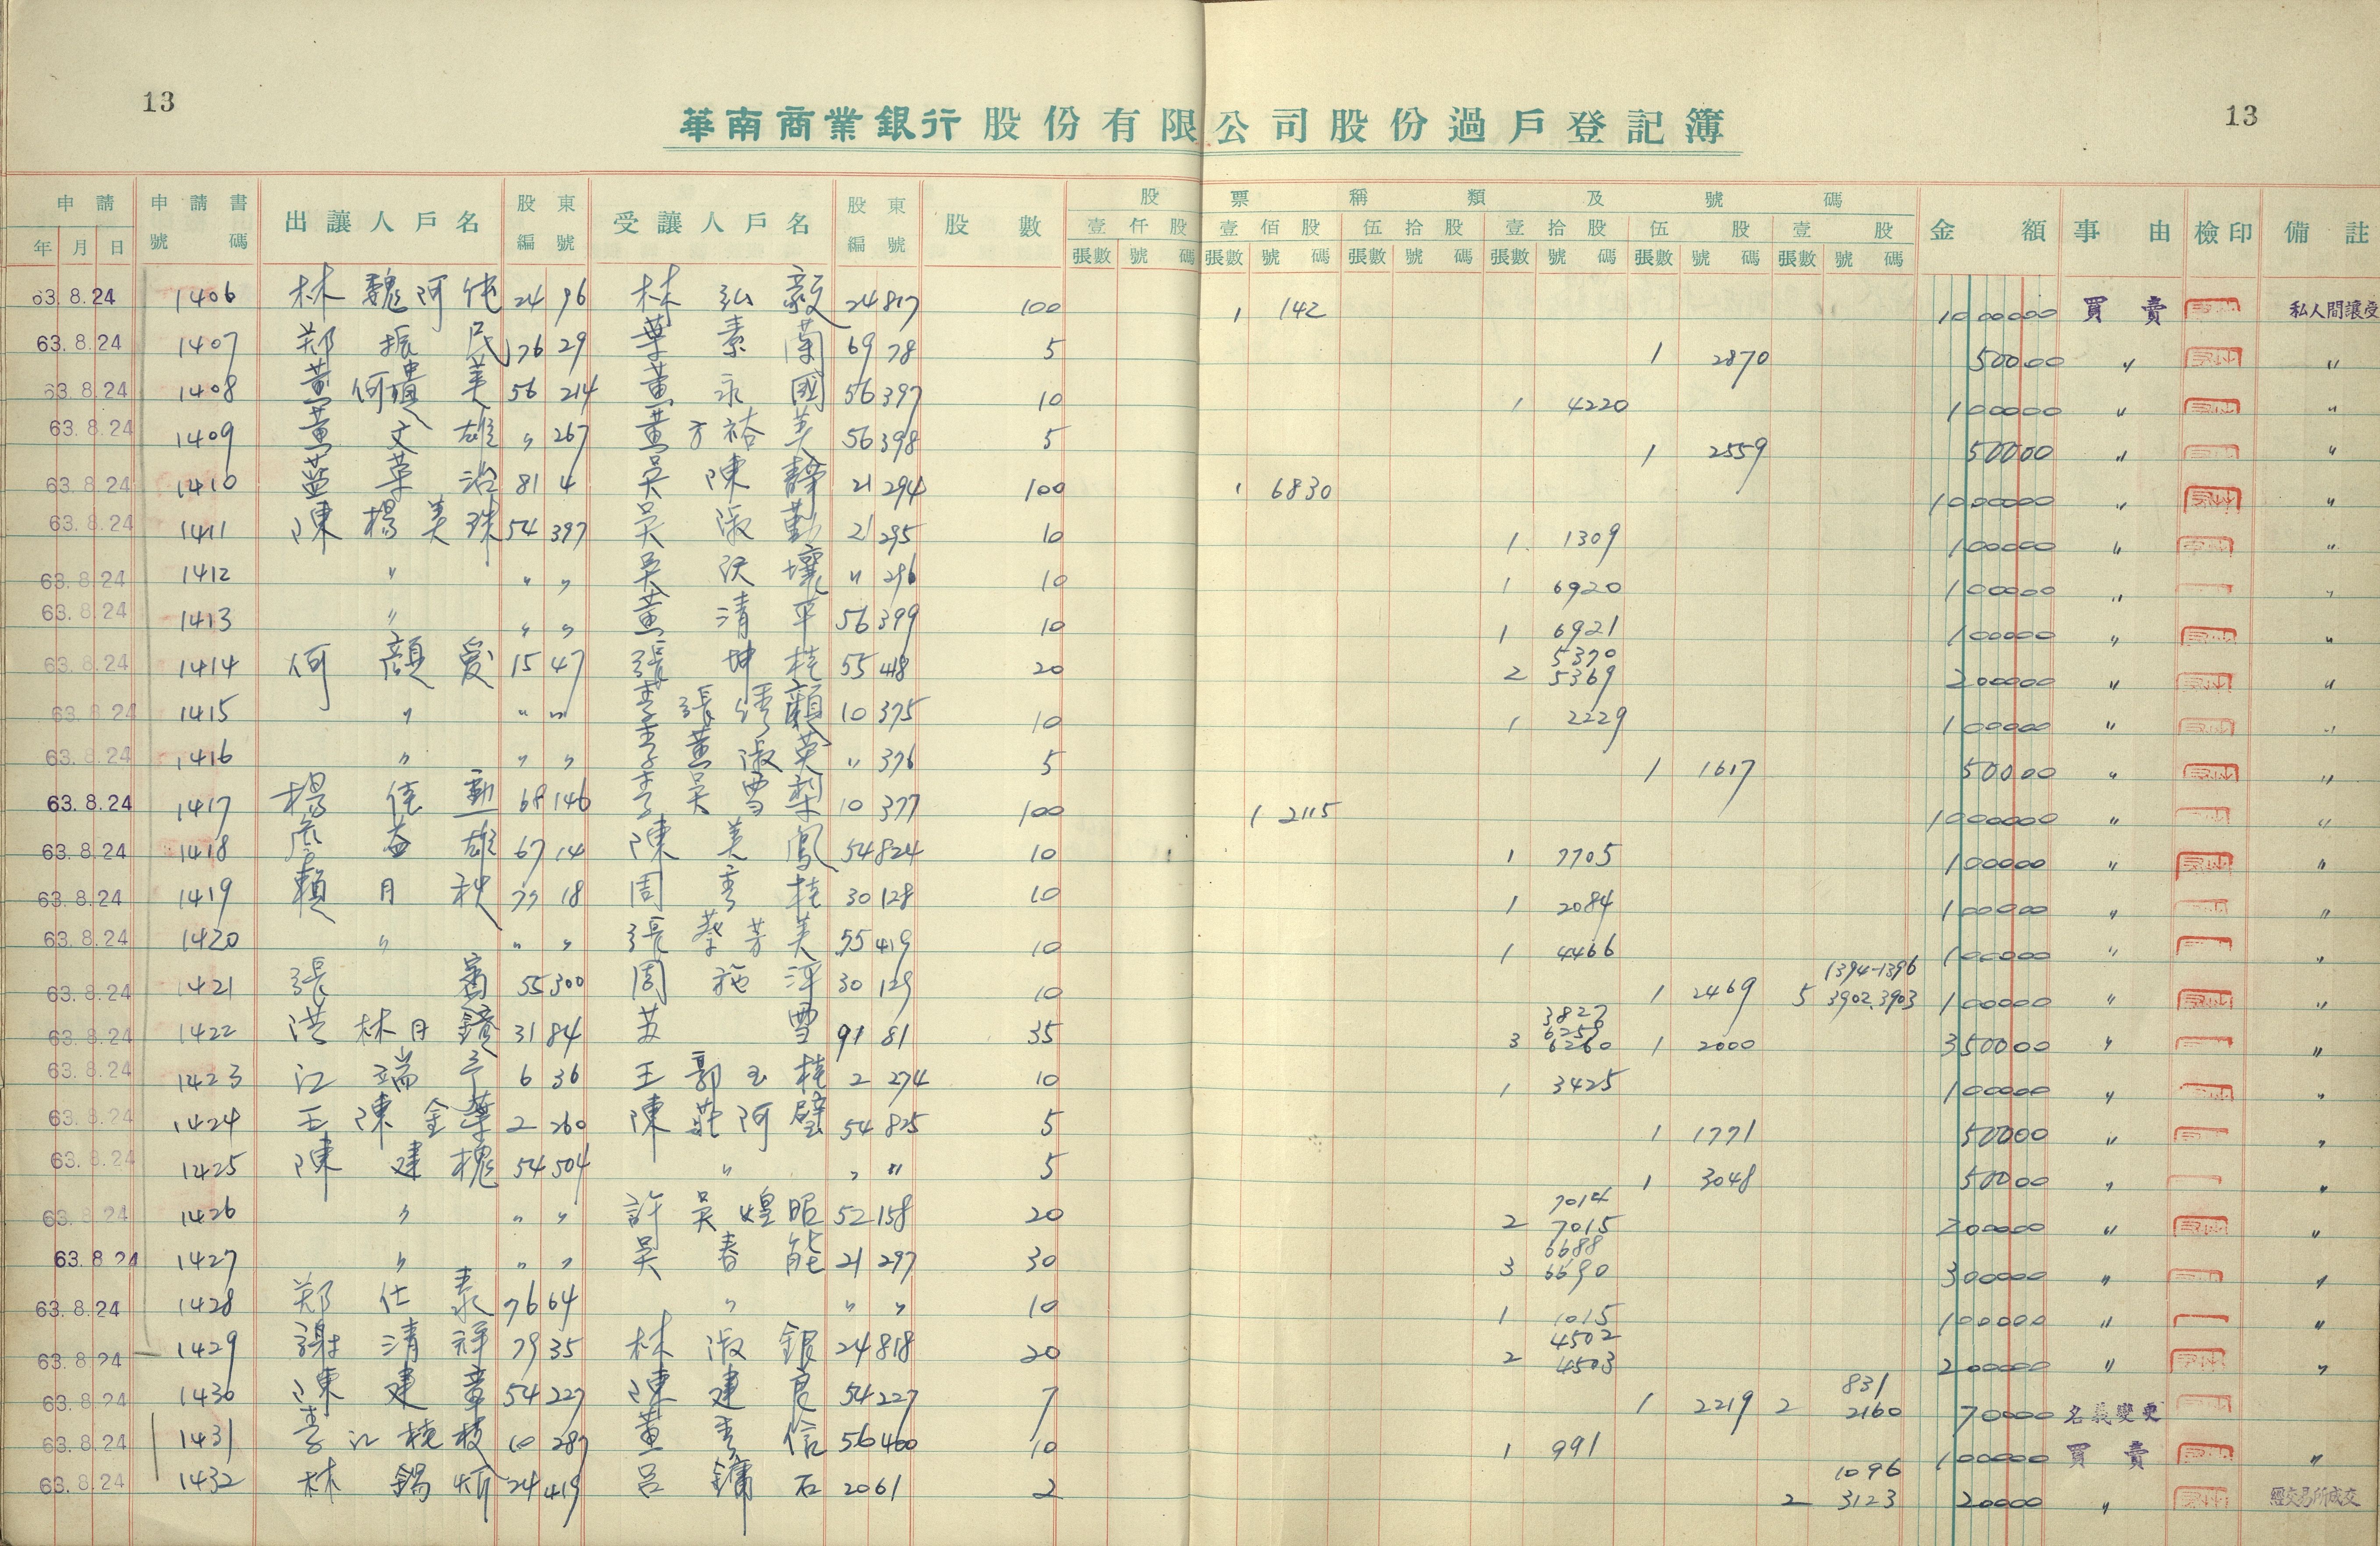 13
13
華南商業銀行股份有限公司股份過戶登記簿
申請 申請書 出讓人戶名 股東 受讓人戶名 股東 股數 股票稱類及號碼 金額 事由 檢印 備註
年 月 日 號碼 編號 編號 壹仟股 壹佰股 伍拾股 壹拾股 伍股 壹股
張數 號碼 張數 號碼 張數 號碼 張數 號碼 張數 號碼 張數 號碼
63.8.24 1406 林魏阿 24 96 林弘毅 24 817 100 1 142 1000000 買賣 私人間讓受
63.8.24 1407 鄭振民 76 29 葉素蘭 69 78 5 1 2870 50000 〃 〃
63.8.24 1408 黃何 美 56 214 黃永國 56 397 10 1 4220 100000 〃 〃
63.8.24 1409 黃文雄 〃 267 黃方裕美 56 398 5 1 2559 50000 〃 〃
63.8.24 1410 藍革治 81 4 吳陳靜 21 294 100 1 6830 1000000 〃 〃
63.8.24 1411 陳楊美珠 54 397 吳淑勤 21 295 10 1 1309 100000 〃 〃
63.8.24 1412 〃 〃 〃 吳 〃 296 10 1 6920 100000 〃 〃
63.8.24 1413 〃 〃 〃 黃清平 56 399 10 1 6921 100000 〃 〃
63.8.24 1414 何顏愛 15 47 張坤桂 55 418 20 2 5370 5369 200000 〃 〃
63.8.24 1415 〃 〃 〃 李張秀顏 10 375 10 1 2229 100000 〃 〃
63.8.24 1416 〃 〃 〃 李黃淑英 〃 376 5 1 1617 50000 〃 〃
63.8.24 1417 楊 勳 68 146 李吳雪梨 10 377 100 1 2115 1000000 〃 〃
63.8.24 1418 詹益雄 67 14 陳美鳳 54 824 10 1 7705 100000 〃 〃
63.8.24 1419 賴月秋 77 18 周秀桂 30 128 10 1 2084 100000 〃 〃
63.8.24 1420 〃 〃 〃 張蔡芳美 55 419 10 1 4466 100000 〃 〃
63.8.24 1421 張 55 300 周施 30 129 10 1 2469 5 1394-1396 3902.3903 100000 〃 〃
63.8.24 1422 洪林日 31 84 苏雪 91 81 35 3 3827 6259 6260 1 2000 350000 〃 〃
63.8.24 1423 江瑞亭 6 36 王郭玉桂 2 274 10 1 3425 100000 〃 〃
63.8.24 1424 王陳金葉 2 260 陳莊阿璧 54 825 5 1 1771 50000 〃 〃
63.8.24 1425 陳建槐 54 504 〃 〃 〃 5 1 3048 50000 〃 〃
63.8.24 1426 〃 〃 〃 許吳煌昭 52 158 20 2 7014 7015 200000 〃 〃
63.8.24 1427 〃 〃 〃 吳春能 21 297 30 3 6688 6690 300000 〃 〃
63.8.24 1428 鄭仕泰 76 64 〃 〃 〃 10 1 1015 100000 〃 〃
63.8.24 1429 謝清祥 79 35 林淑銀 24 818 20 2 4502 4503 200000 〃 〃
63.8.24 1430 陳建章 54 227 陳建良 54 227 7 1 2219 2 831 2160 70000 名義變更
63.8.24 1431 李江桃枝 10 287 黃秀信 56 400 10 1 991 100000 買賣 〃
63.8.24 1432 林錫 24 419 呂鏞石 20 61 2 2 1096 3123 20000 〃 經交易所成交